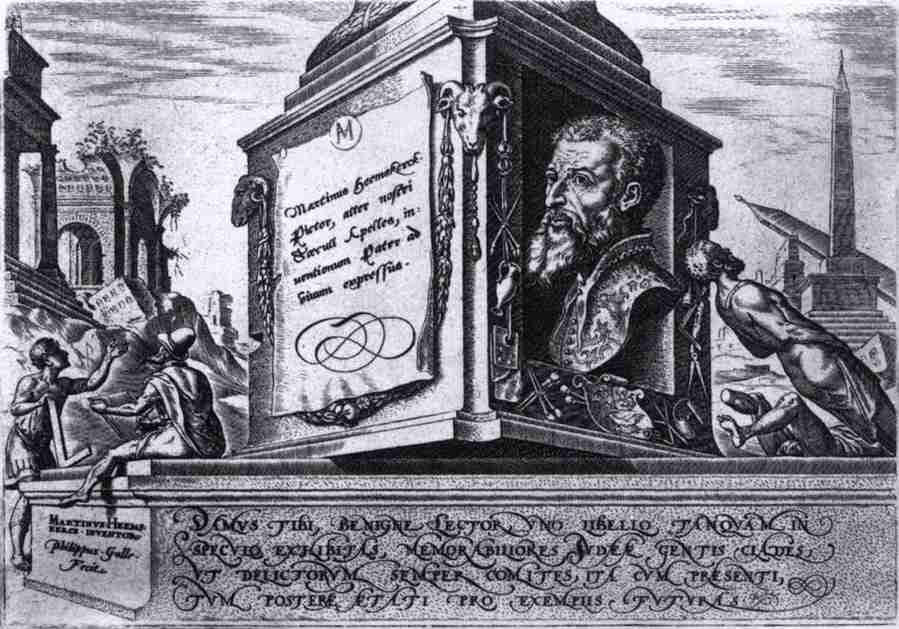 Martinus Heemskerck
Pictor, alter nostri
Sæculi Apelles, in-
uentionum Pater ad
uiuum expressus.
MARTINVS HEEMS-
KERCK INVENTOR
Philippus Galle
Fecit.
DAMVS TIBI, BENIGNE LECTOR, VNO LIBELLO, TANQVAM IN
SPECVLO EXHIBITAS, MEMORABILIORES IVDEÆ GENTIS CLADES,
VT DELICTORVM SEMPER COMITES, ITA CVM PRESENTI,
TVM POSTERE ETATI PRO EXEMPLIS FVTVRAS